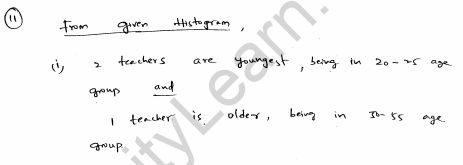 (11) From given Histogram,
(i) 2 teachers are youngest, being in 20-25 age
group and
1 teacher is older, being in 50-55 age
group
ityLearn.